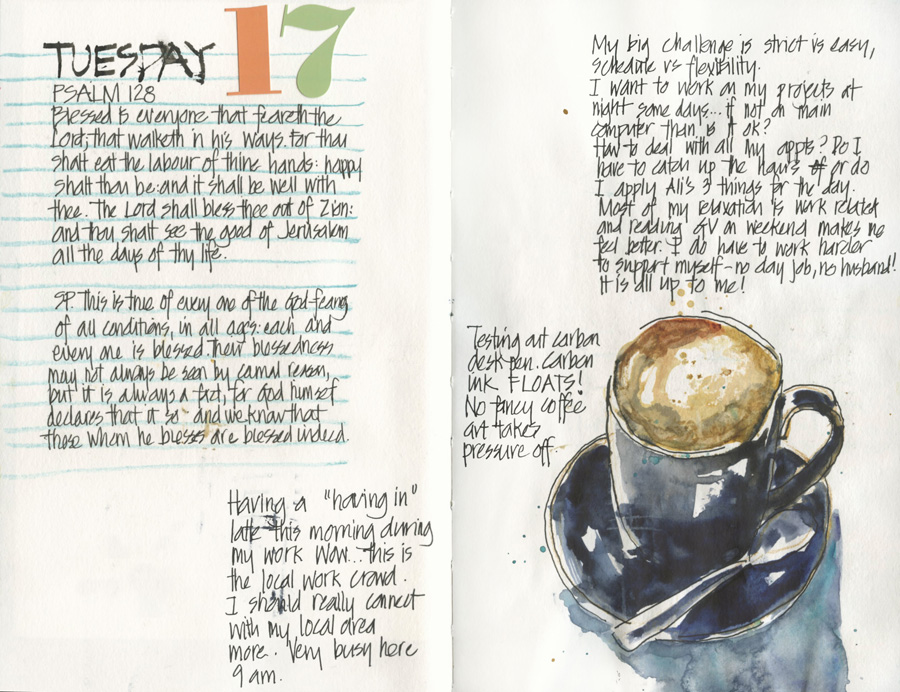 TUESDAY 17
PSALM 128
Blessed is everyone that feareth the
Lord; that walketh in his ways. For thou
shalt eat the labour of thine hands: happy
shalt thou be: and it shall be well with
thee. The Lord shall bless thee out of Zion:
and thou shalt see the good of Jerusalem
all the days of thy life.
SP. This is true of every one of the God-fearing
of all conditions, in all ages: each and
every one is blessed. Their blessedness
may not always be seen by carnal reason,
but it is always a fact, for God himself
declares that it is so and we know that
those whom he blesses are blessed indeed.
Having a "having in"
latte this morning during
my work Wow... this is
the local work crowd.
I should really connect
with my local area
more. Very busy here
9 am.
My big challenge is strict vs easy,
schedule vs flexibility.
I want to work on my projects at
night some days... if not on main
computer than is it ok?
How to deal with all my appts? Do I
have to catch up the hours or do
I apply Ali's 3 things for the day.
Most of my relaxation is work related
and reading GV on weekend makes me
feel better. I do have to work harder
to support myself - no day job, no husband!
It is all up to me!
Testing out carbon
desk pen. Carbon
ink FLOATS!
No fancy coffee
art takes
pressure off